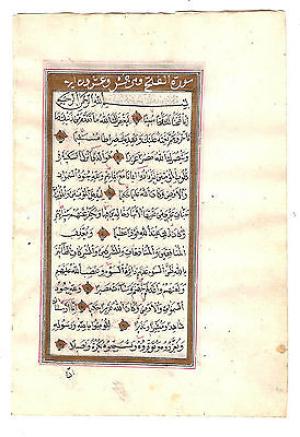 سورة الفتح وهي تسع وعشرون آية
بِسْمِ اللهِ الرَّحْمٰنِ الرَّحِيمِ
إِنَّا فَتَحْنَا لَكَ فَتْحًا مُبِينًا لِيَغْفِرَ لَكَ اللهُ مَا تَقَدَّمَ مِنْ ذَنْبِكَ
وَمَا تَأَخَّرَ وَيُتِمَّ نِعْمَتَهُ عَلَيْكَ وَيَهْدِيَكَ صِرَاطًا مُسْتَقِيمًا
وَيَنْصُرَكَ اللهُ نَصْرًا عَزِيزًا هُوَ الَّذِي أَنْزَلَ السَّكِينَةَ فِي
قُلُوبِ الْمُؤْمِنِينَ لِيَزْدَادُوا إِيمَانًا مَعَ إِيمَانِهِمْ وَلِلّٰهِ جُنُودُ السَّمٰوَاتِ
وَالْأَرْضِ وَكَانَ اللهُ عَلِيمًا حَكِيمًا لِيُدْخِلَ الْمُؤْمِنِينَ وَالْمُؤْمِنَاتِ
جَنَّاتٍ تَجْرِي مِنْ تَحْتِهَا الْأَنْهَارُ خَالِدِينَ فِيهَا وَيُكَفِّرَ عَنْهُمْ سَيِّئَاتِهِمْ
وَكَانَ ذٰلِكَ عِنْدَ اللهِ فَوْزًا عَظِيمًا وَيُعَذِّبَ
الْمُنَافِقِينَ وَالْمُنَافِقَاتِ وَالْمُشْرِكِينَ وَالْمُشْرِكَاتِ الظَّانِّينَ
بِاللهِ ظَنَّ السَّوْءِ عَلَيْهِمْ دَائِرَةُ السَّوْءِ وَغَضِبَ اللهُ عَلَيْهِمْ
وَلَعَنَهُمْ وَأَعَدَّ لَهُمْ جَهَنَّمَ وَسَاءَتْ مَصِيرًا وَلِلّٰهِ جُنُودُ
السَّمٰوَاتِ وَالْأَرْضِ وَكَانَ اللهُ عَزِيزًا حَكِيمًا إِنَّا أَرْسَلْنَاكَ
شَاهِدًا وَمُبَشِّرًا وَنَذِيرًا لِتُؤْمِنُوا بِاللهِ وَرَسُولِهِ
وَتُعَزِّرُوهُ وَتُوَقِّرُوهُ وَتُسَبِّحُوهُ بُكْرَةً وَأَصِيلًا
إن